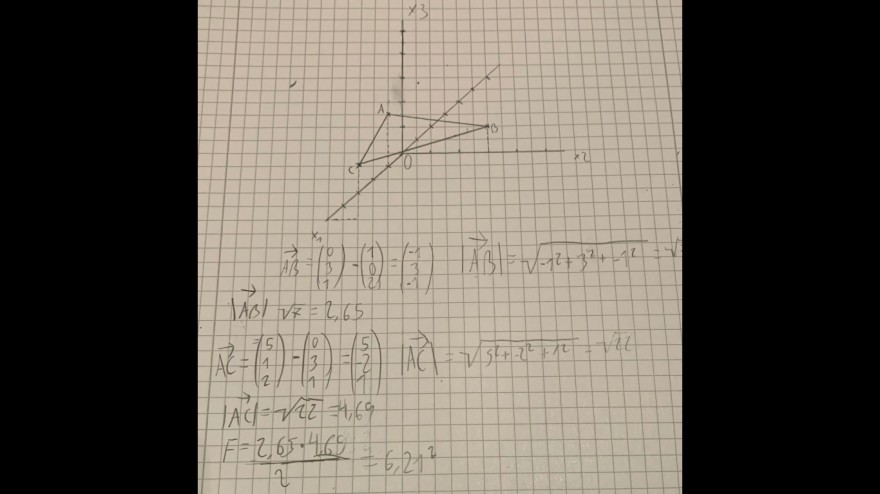 x3
A
B
C
0
x2
x1
AB = (0 3 1) - (1 0 2) = (-1 3 -1) |AB| = √-1²+3²+-1² = √
|AB| √7 = 2,65
AC = (5 1 2) - (0 3 1) = (5 -2 1) |AC| = √5²+-2²+1² = √22
|AC| = √22 = 4,69
F = 2,65 · 4,69 / 2 = 6,21²